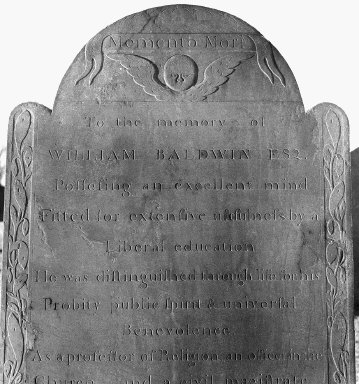 Memento Mori
To the memory of
WILLIAM BALDWIN ESQ.
Poſſeſing an excellent mind
Fitted for extenſive uſefulneſs by a
Liberal education
He was diſtinguiſhed through life for his
Probity public ſpirit & univerſal
Benevolence
As a profeſſor of Religion an officer in the
Church and a civil magiſtrate